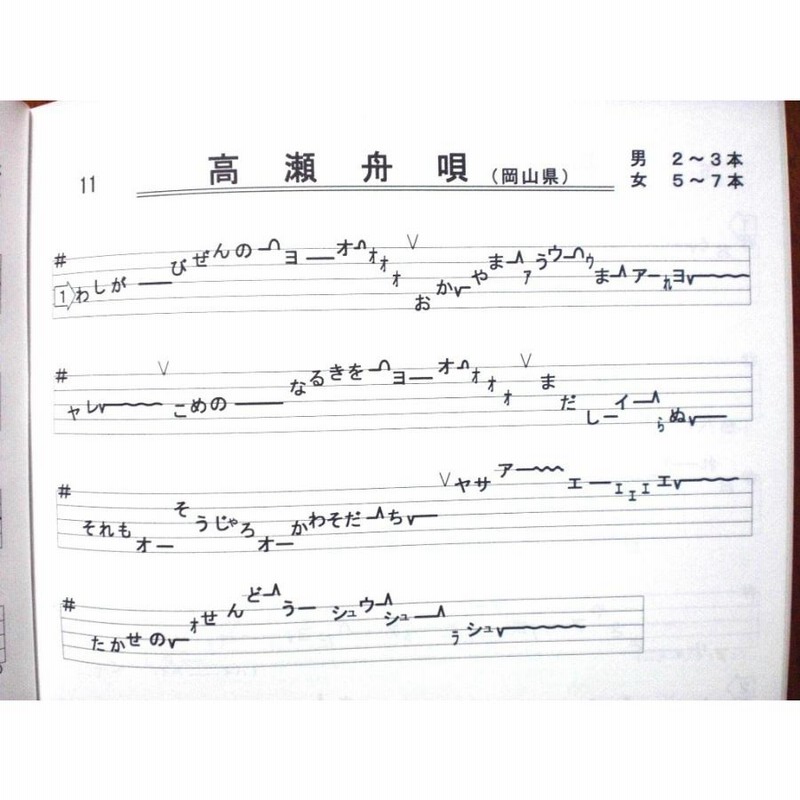 11 高瀬舟唄 (岡山県) 男 2～3本
女 5～7本
# 1 わしが ― びぜんの ヨ ― オオオオ ∨ おかやまァうウゥまアーれヨ
# ャレ ∨ こめの ― なるきを ヨ ― オオオオ ∨ まだしーイーらぬ
# それもオーそうじゃろオーかわそだち ∨ ヤサアーエーエエエエ
# たかせのオせんどうーシュウシューうシュ